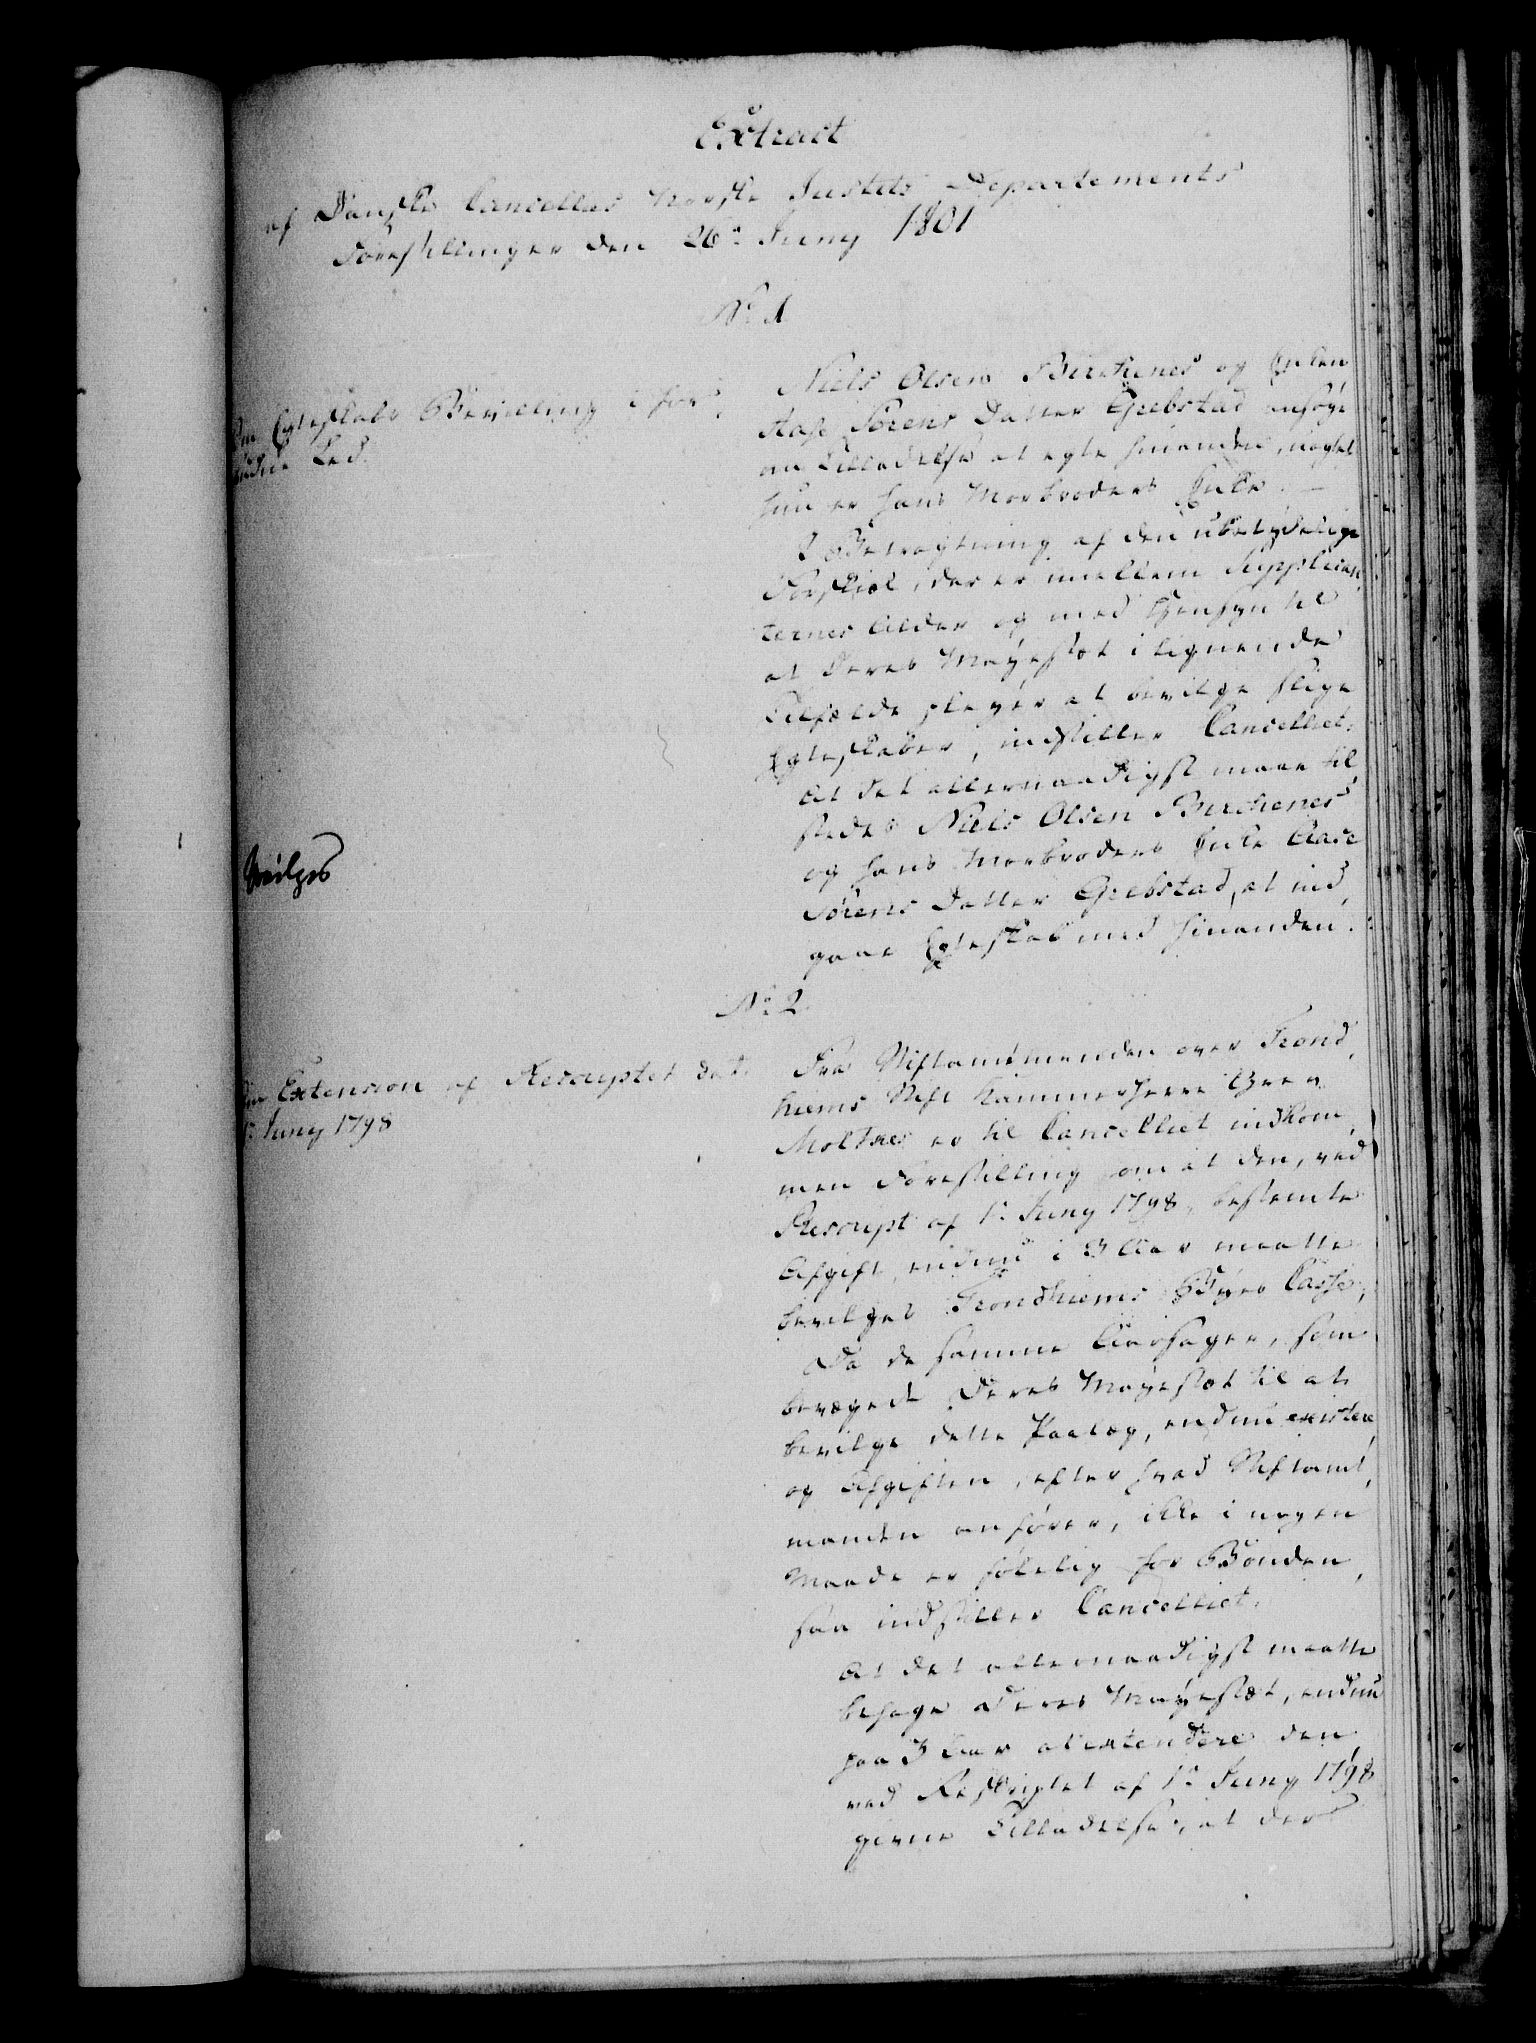 Extract
af Danske Cancellies Norske Justits Departements
Forestillinger den 26de Juny 1801
No. 1
Om Egteskabs Bevilling i for¬
budne Led.
Niels Olsen Birchenes og Enken
Aase Sørens Datter Grebstad ansøge
om Tilladelse at egte hinanden, uagtet
hun er hans Morbroders Enke. —
I Betragtning af den ubetydelige
Forskiæl, der er imellem Supplican¬
ternes Alder og med Hensyn til
at Deres Mayestæt i lignende
Tilfælde pleyer at bevilge slige
Egteskaber, indstiller Cancelliet:
At det allernaadigst maae til¬
stedes Niels Olsen Birchenes
og hans Morbroders Enke Aase
Sørens Datter Grebstad, at ind¬
gaae Egteskab med hinanden.
Bevilges
No. 2.
Om Extension af Rescriptet dat.
1. Juny 1798
Fra Stiftamtmanden over Trond¬
hiems Stift Kammerherre Grev
Moltke er til Cancelliet indkom¬
men Forestilling om at den, ved
Rescript af 1. Juny 1798, bestemte
Afgift, endnu i 3 Aar maatte
bevilges Trondhiems Byes Casse,
Da de samme Aarsager, som
bevægede Deres Mayestæt til at
bevilge dette Paalæg, endnu existere,
og Afgiften, efter hvad Stiftamt¬
manden anfører, ikke i nogen
Maade er følelig for Bonden,
saa indstiller Cancelliet:
At det allernaadigst maatte
behage Deres Mayestæt, endnu
paa 3 Aar at extendere den
ved Rescriptet af 1. Juny 1798
givne Tilladelse, at der